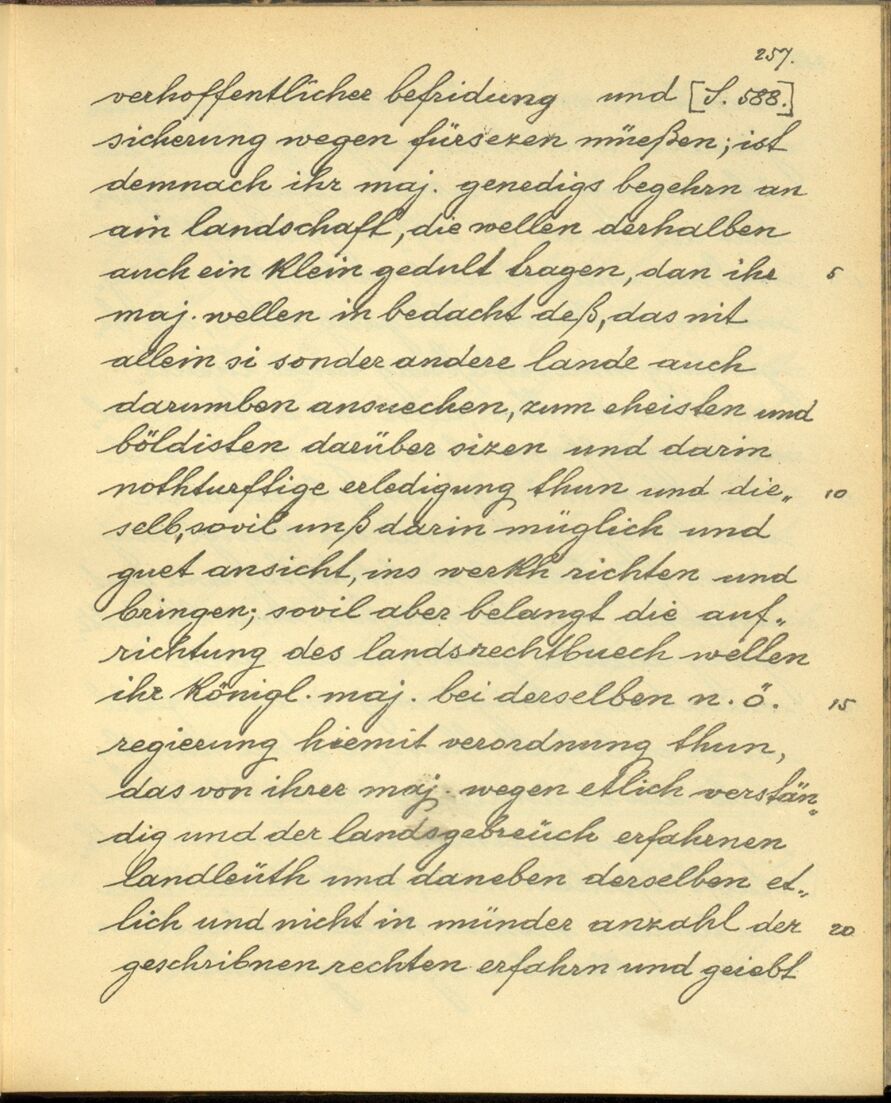 257.
verhoffentlicher befridung und [S. 588.]
sicherung wegen fürsezen müeßen; ist
demnach ihr maj. genedigs begehrn an
ain landschaft, die wellen derhalben
auch ein klein gedult tragen, dan ihr 5
maj. wellen in bedacht deß, das nit
allein si sonder andere lande auch
darumben ansuechen, zum eheisten und
böldisten darüber sizen und darin
nothturftige erledigung thun und die„ 10
selb, sovil unß darin müglich und
guet ansicht, ins werkh richten und
bringen; sovil aber belangt die auf„
richtung des landsrechtbuech wellen
ihr königl. maj. bei derselben n. ö. 15
regierung hiemit verordnung thun,
das von ihrer maj. wegen etlich verstän„
dig und der landsgebreüch erfahrnen
landleüth und daneben derselben et„
lich und nicht in münder anzahl der 20
geschribnen rechten erfahrn und geiebt